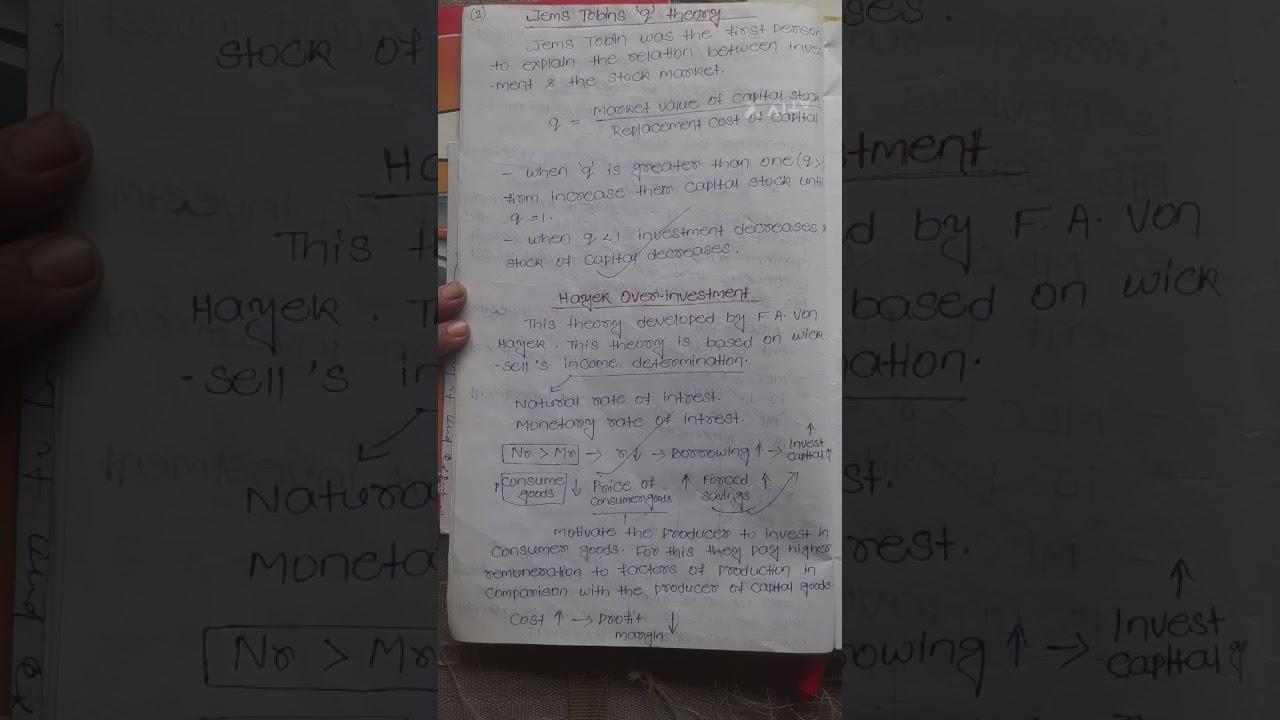 (2) Jems Tobins 'q' theory
Jems Tobin was the first person
to explain the relation between inves
-ment & the stock market.
q = Market value of capital stock
Replacement cost of capital
- when 'q' is greater than one (q>
firm increase their capital stock until
q = 1.
- when q < 1 investment decreases &
stock of capital decreases.
Hayek Over-investment
This theory developed by F.A. Von
Hayek. This theory is based on wick
-sell's income determination.
Natural rate of intrest.
Monetary rate of intrest.
Nr > Mr → r↓ → Borrowing ↑ → Invest ↑
capital
Consume goods ↓ Price of consumer goods ↑ Forced savings ↑
motivate the producer to invest in
consumer goods. For this they pay higher
remuneration to factors of production in
comparison with the producer of capital goods.
Cost ↑ → Profit ↓
margin